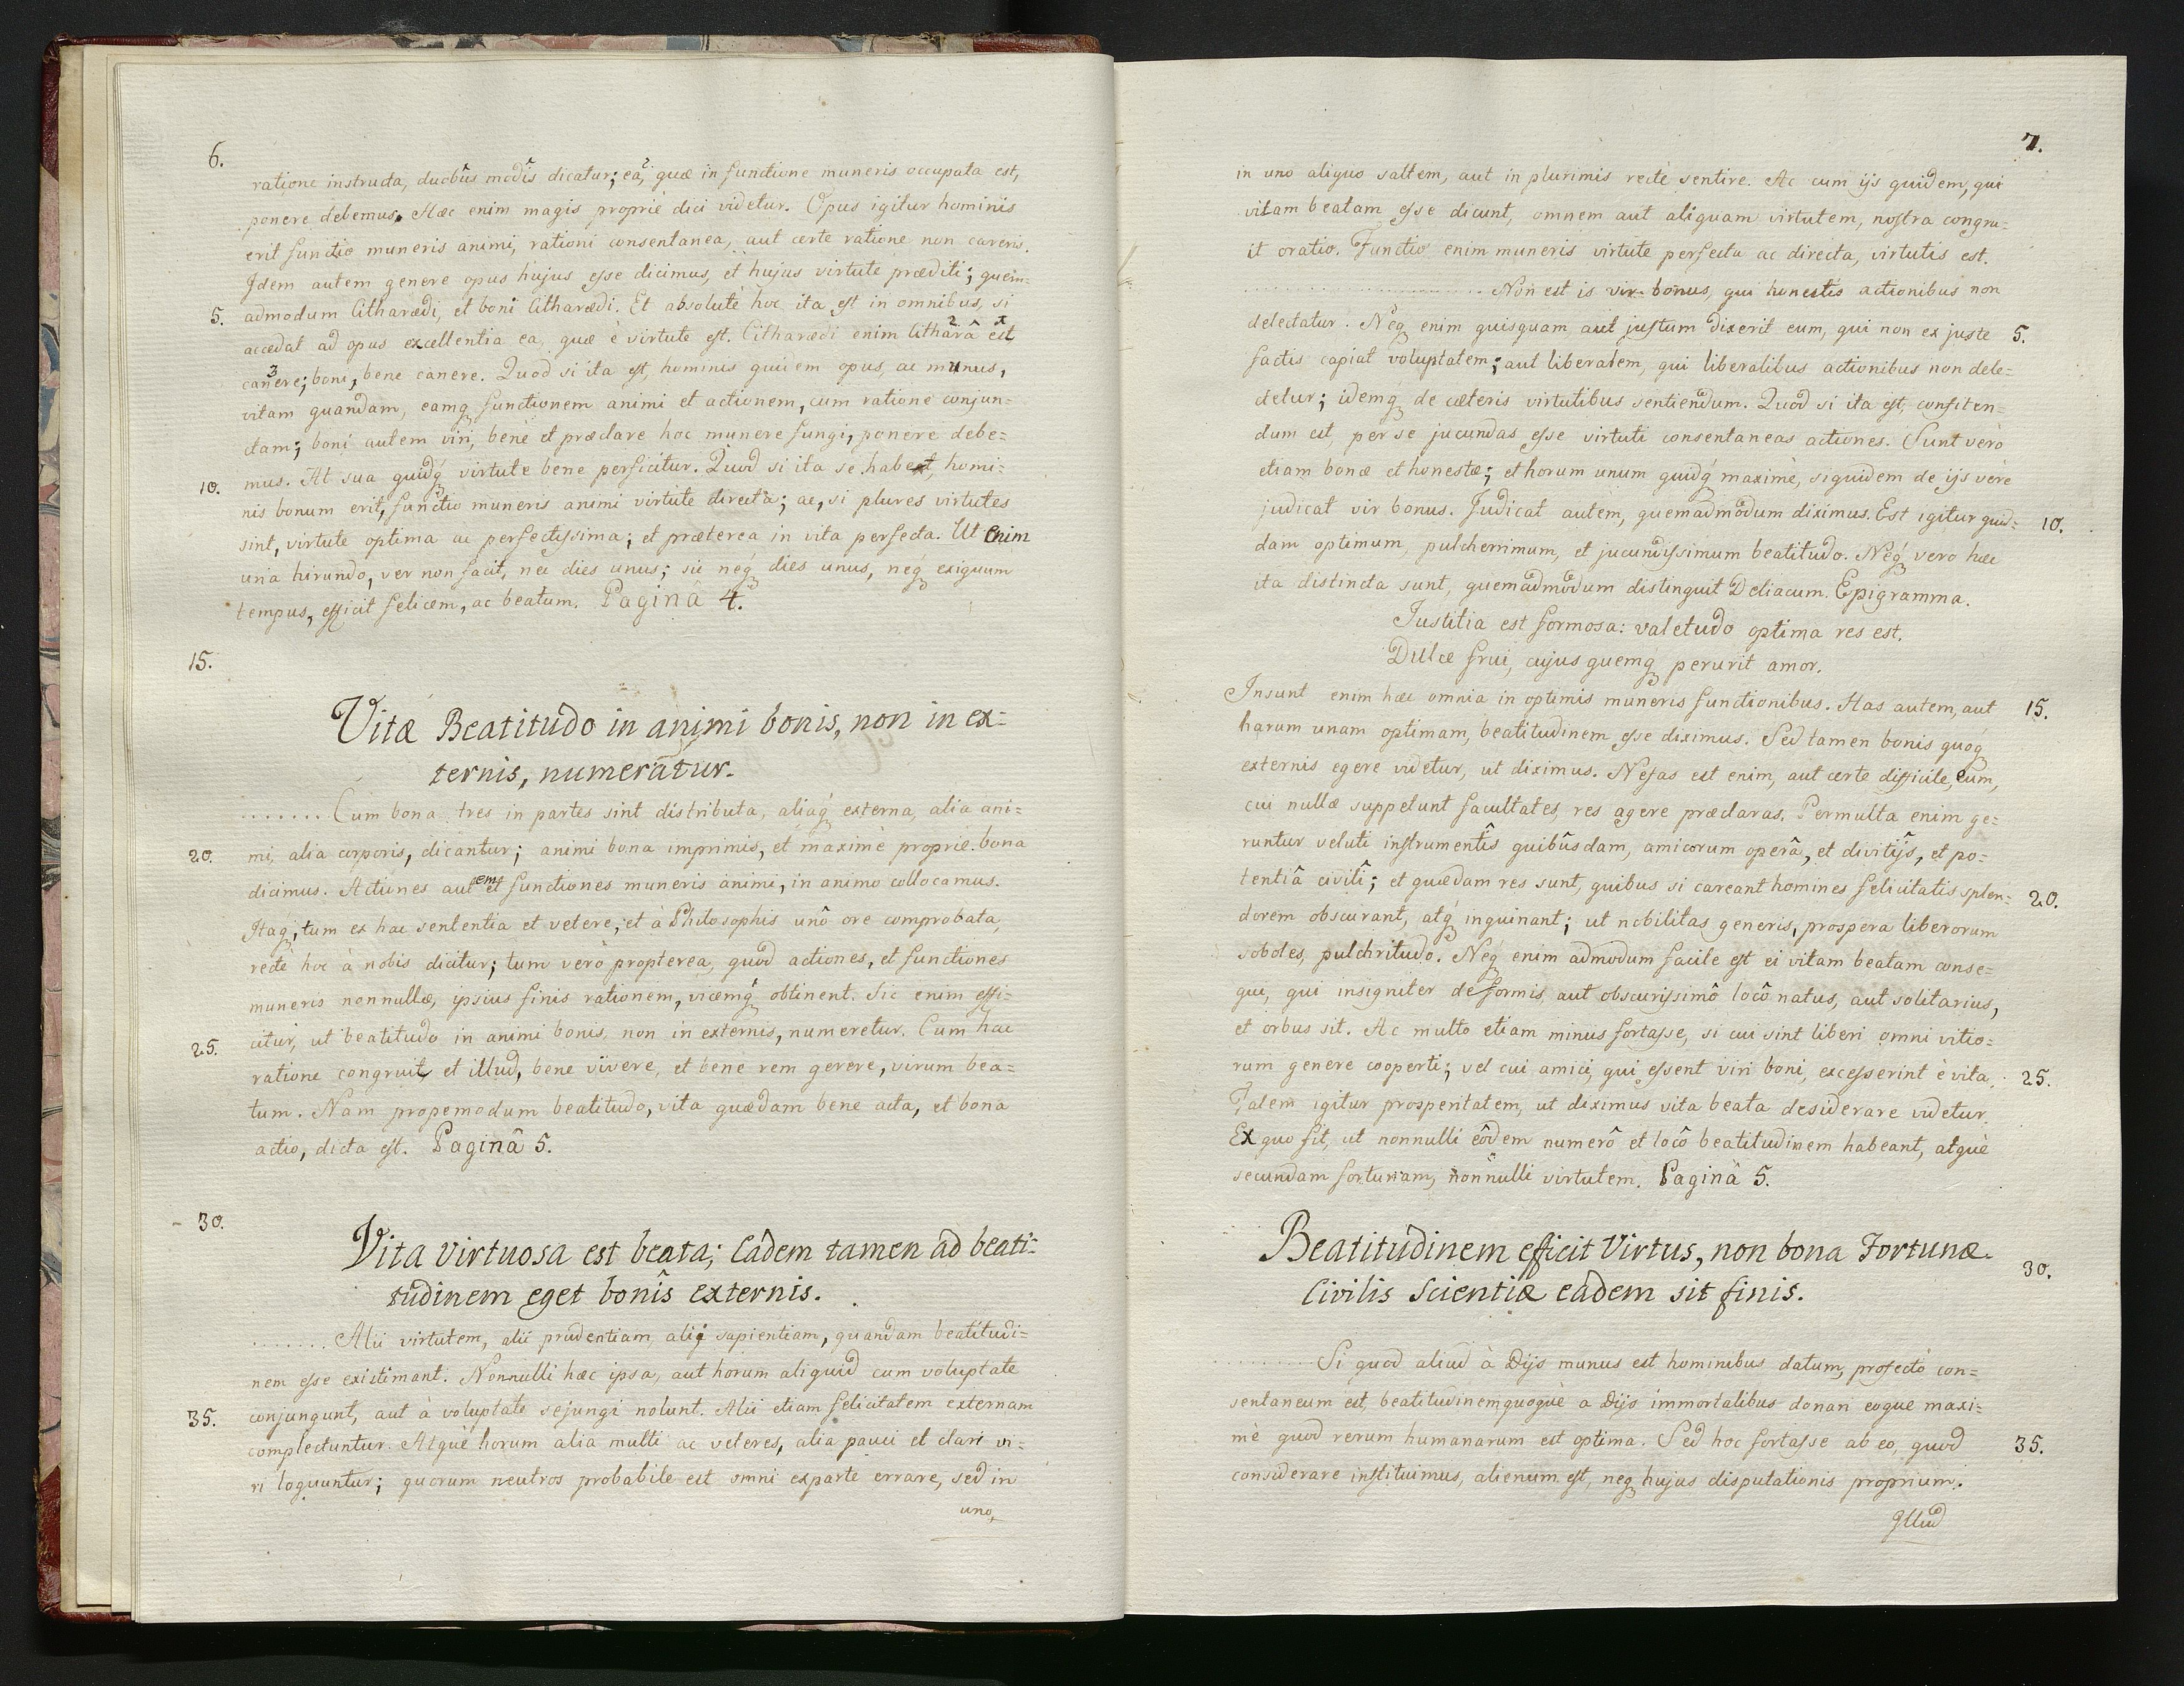 6.
ratione instructa, duobûs modîs dicatur; eâ, quæ in functione muneris occupata est,
ponere debemus. Hæc enim magis propriè dici videtur. Opus igitur hominis
erit functio muneris animi, rationi consentanea, aut certe ratione non carens.
Idem autem genere opus hujus esse dicimus, et hujus virtute præditi; quem-
5. admodum Citharædi, et boni Citharædi. Et absolutè hoc ita est in omnibus, si
accedat ad opus excellentia ea, quæ è virtute est. Citharædi enim Citharâ est
canere; boni, bene canere. Quod si ita est, hominis quidem opus, ac munus,
vitam quandam, eamq́ functionem animi et actionem, cum ratione conjun=
ctam; boni autem viri, benè et præclare hoc munere fungi, ponere debe=
10. mus. At sua quidq́ virtute bene perficitur. Quod si ita se habet, homi=
nis bonum erit, functio muneris animi virtute directa; ac, si plures virtutes
sint, virtute optima ac perfectissima; et præterea in vita perfecta. Ut Enim
una hirundo, ver non facit, nec dies unus; sic neq́ dies unus, neq́ exiguum
tempus, efficit felicem, ac beatum. Paginâ 4.
15.
Vitæ Beatitudo in animi bonis, non in ex=
ternis, numeratur.
....... Cum bona tres in partes sint distributa, aliaq́ externa, alia ani=
20. mi, alia corporis, dicantur; animi bona imprimis, et maximè propriè bona
dicimus. Actiones autem et functiones muneris animi, in animo collocamus.
Itaq́, tum ex hac sententia et vetere, et à Philosophis unô ore comprobata,
recte hoc à nobis dicitur; tum verò propterea, quod actiones, et functiones
muneris nonnullæ, ipsius finis rationem, vicemq́ obtinent. Sic enim effi=
25. citur, ut beatitudo in animi bonis, non in externis, numeretur. Cum hac
ratione congruit et illud, bene vivere, et bene rem gerere, virum bea=
tum. Nam propemodum beatitudo, vita quædam bene acta, et bona
actio, dicta est. Paginâ 5.
30.
Vita virtuosa est beata; Eâdem tamen ad beati=
tudinem eget bonîs externis.
....... Alii virtutem, alii prudentiam, alij sapientiam, quandam beatitudi=
nem esse existimant. Nonnulli hæc ipsa, aut horum aliquid cum voluptate
35. conjungunt, aut à voluptate sejungi nolunt. Alii etiam felicitatem externam
complectuntur. Atquè horum alia multi ac veteres, alia pauci et clari vi=
ri loquuntur; quorum neutros probabile est omni exparte errare, sed in
uno,
7.
in uno aliquo saltem, aut in plurimis rectè sentire. Ac cum ijs quidem, qui
vitam beatam esse dicunt, omnem aut aliquam virtutem, nostra congru=
it oratio. Functio enim muneris virtute perfecta ac directa, virtutis est.
....... Non est is vir bonus, qui honestis actionibus non
delectatur. Neq́ enim quisquam aut justum dixerit eum, qui non ex juste 5.
factis capiat voluptatem; aut liberalem, qui liberalibus actionibus non dele=
ctetur; idemq́ de cæteris virtutibus sentiendum. Quod si ita est, confiten=
dum est, per se jucundas esse virtuti consentaneas actiones. Sunt verò
etiam bonæ et honestæ; et horum unum quidq́ maximè, siquidem de ijs verè
judicat vir bonus. Judicat autem, quemadmodum diximus. Est igitur quid= 10.
dam optimum, pulcherrimum, et jucundissimum beatitudo. Neq́ vero hæc
ita distincta sunt, quemadmodum distinguit Deliacum Epigramma.
Justitia est formosa: valetudo optima res est.
Dulce frui, cujus quemq́ perurit amor.
Insunt enim hæc omnia in optimis muneris functionibus. Has autem, aut 15.
harum unam optimam, beatitudinem esse diximus. Sed tamen bonis quoq́
externis egere videtur, ut diximus. Nefas est enim, aut certe difficile, eum,
cui nullæ suppetunt facultates, res agere præclaras. Permulta enim ge=
runtur veluti instrumentîs quibûsdam, amicorum operâ, et divitijs, et po=
tentiâ civili; et quædam res sunt, quibus si careant homines felicitatis splen= 20.
dorem obscurant, atq́ inquinant; ut nobilitas generis, prospera liberorum
soboles, pulchritudo. Neq́ enim admodum facile est ei vitam beatam conse=
qui, qui insigniter deformis, aut obscurissimô locô natus, aut solitarius,
et orbus sit. Ac multo etiam minus fortasse, si cui sint liberi omni vitio=
rum genere cooperti; vel cui amici, qui essent viri boni, excesserint è vita. 25.
Talem igitur prosperitatem, ut diximus vita beata desiderare videtur.
Ex quo fit, ut nonnulli eôdem numerô et locô beatitudinem habeant, atquè
secundam fortunam, nonnulli virtutem. Paginâ 5.
Beatitudinem efficit Virtus, non bona Fortunæ.
Civilis Scientiæ eâdem sit finis. 30.
....... Si quod aliud à Dijs munus est hominibus datum, profectò con=
sentaneum est, beatitudinemquoquè a Dijs immortalibus donari eoque maxi=
mè quod rerum humanarum est optima. Sed hoc fortasse ab eo, quod 35.
considerare instituimus, alienum est, neq́ hujus disputationis proprium.
Illud